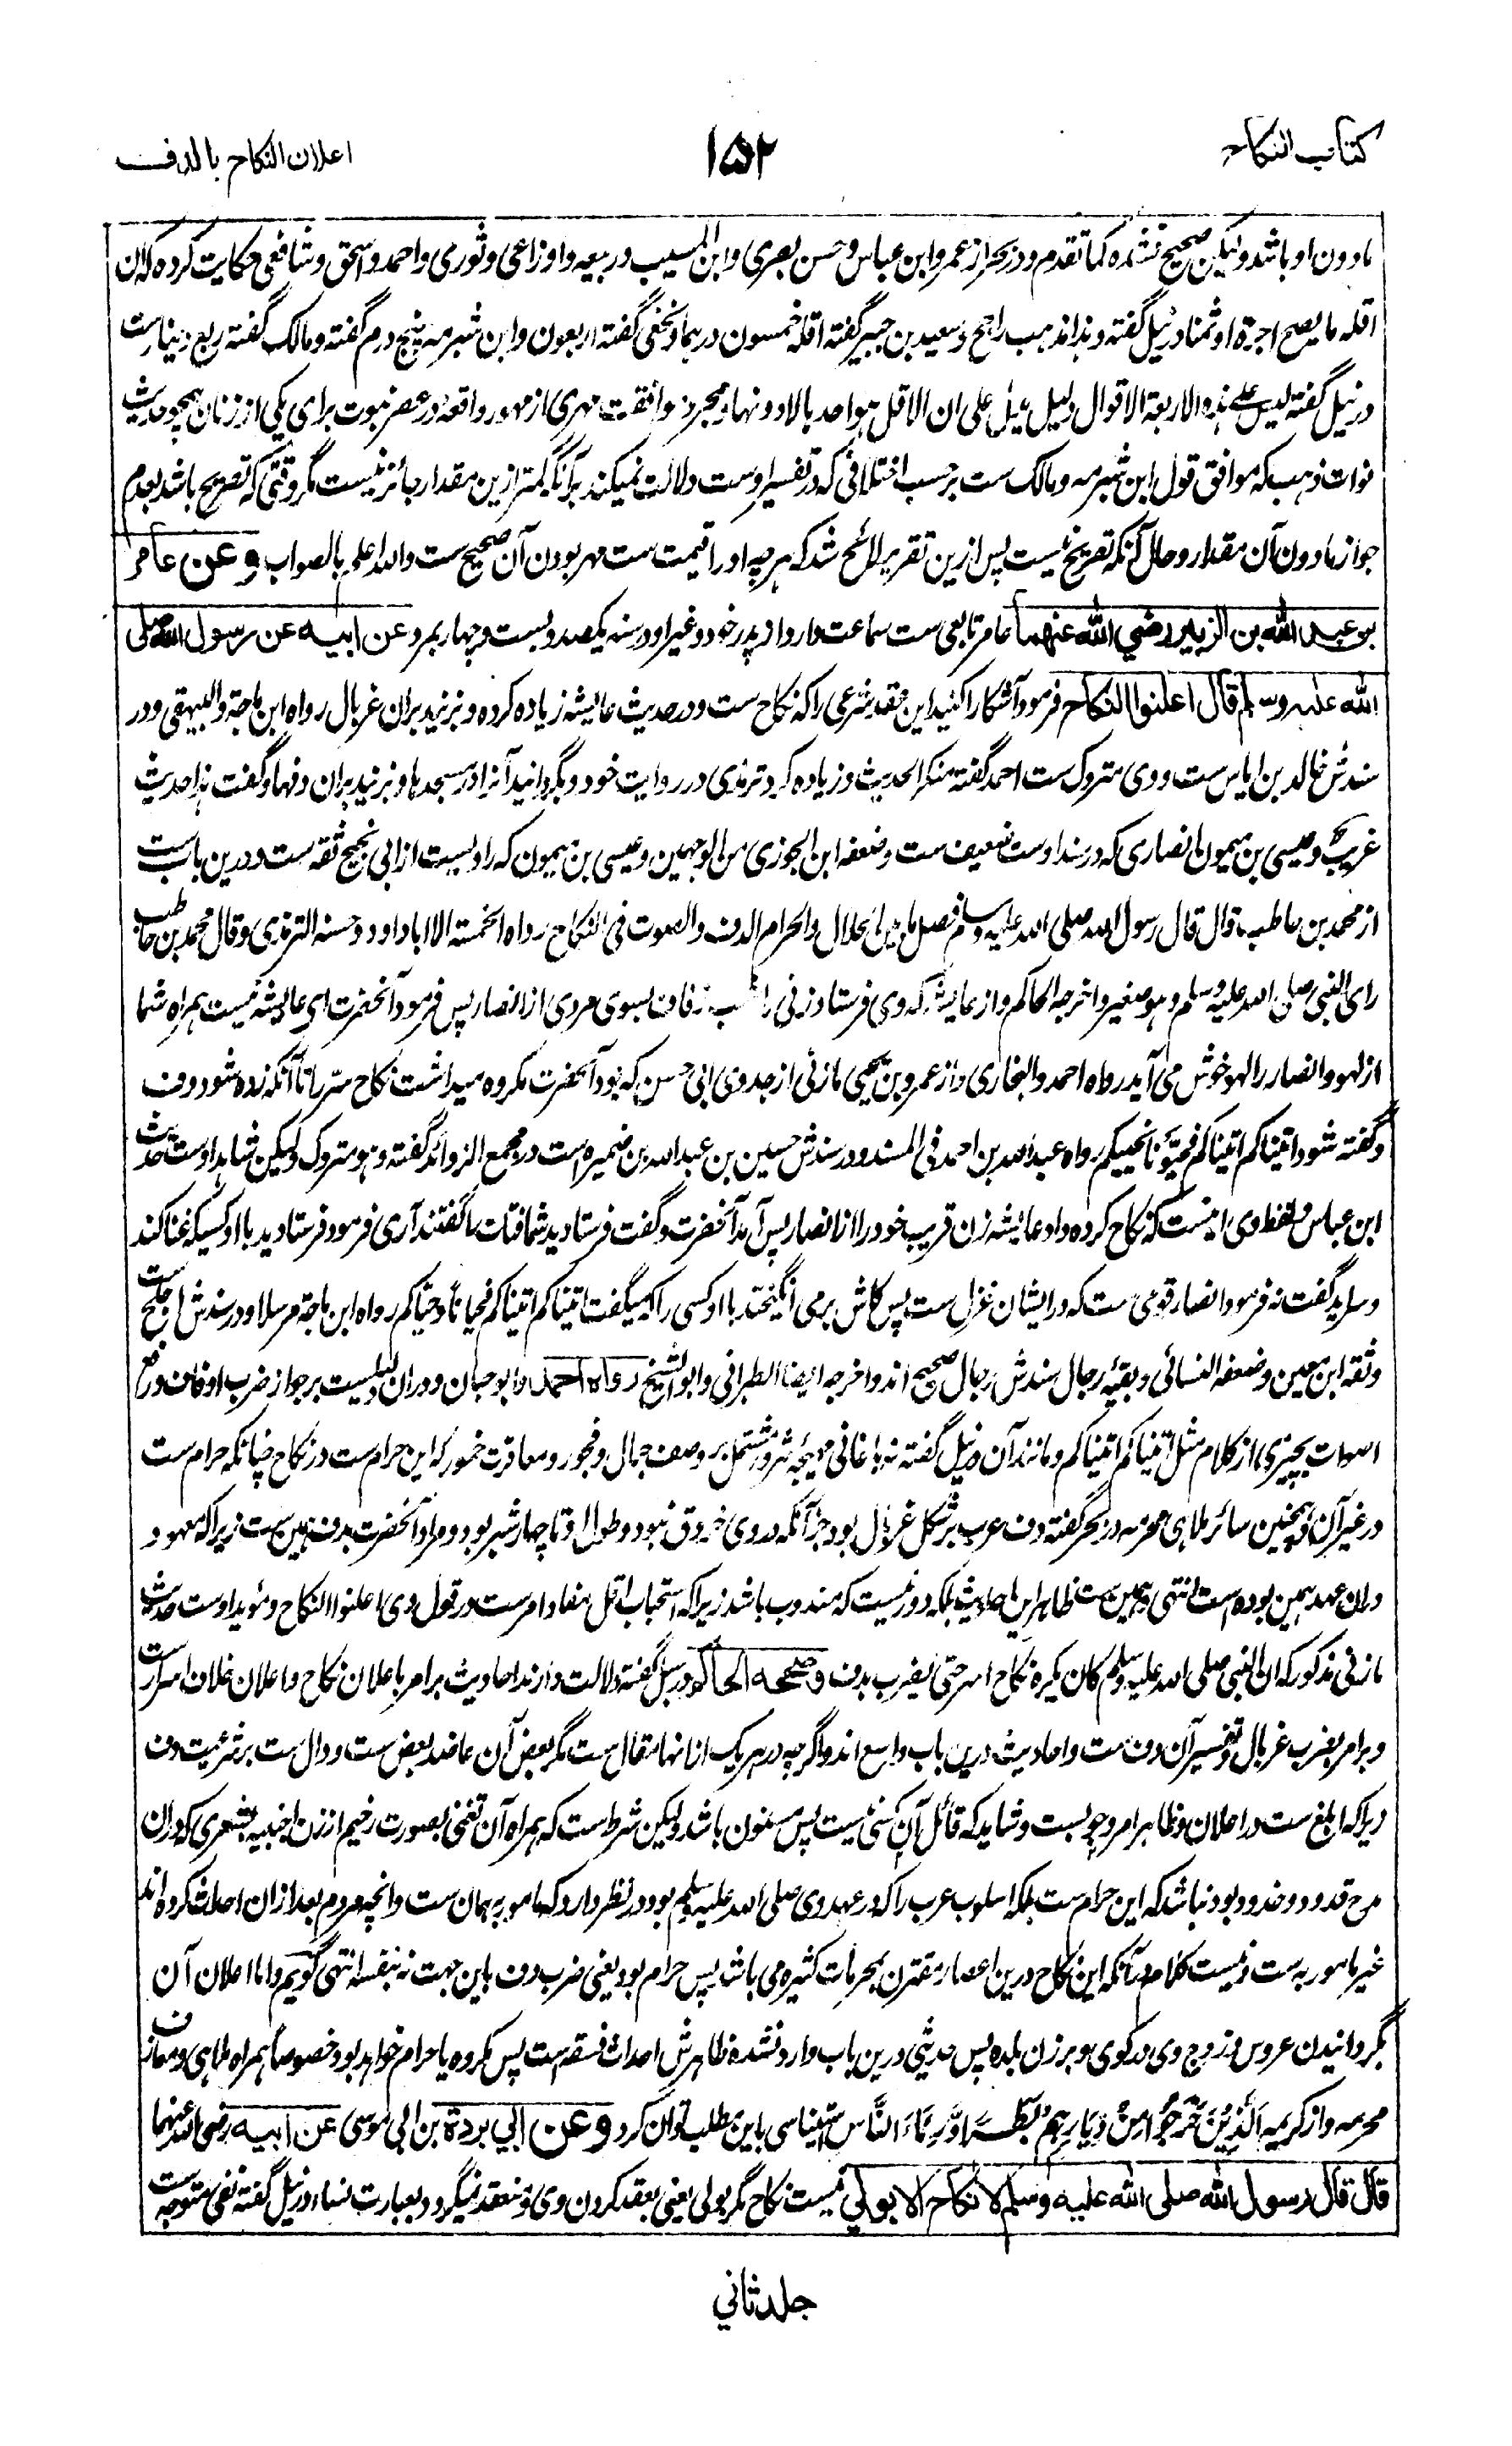 كتاب النكاح
۱۵۲
اعلان النكاح بالدف
مادون او باشد وليكن صحيح نشده كما تقدم و در بحر از عمر و ابن عباس و حسن بصرى و ابن المسيب و ربيعه و اوزاعى و ثورى و احمد و اسحق و شافعى حكايت كرده كه ان
اقله ما يصح اجرة او ثمنا در نيل گفته و هذا مذهب راجح و سعيد بن جبير گفته اقله خمسون درهما و نخعى گفته اربعون و ابن شبرمه پنج درم گفته و مالك گفته ربع دينارست
در نيل گفته ليس على هذه الاربعة الاقوال دليل يدل على ان الاقل هو احدها لا دونها و مجرد موافقت مهرى از مهور واقعه در عصر نبوت براى يكى از زنان همچو حديث
نوات ذهب كه موافق قول ابن شبرمه و مالك ست برحسب اختلافى كه در تفسير اوست دلالت نميكند برآنكه كمتر ازين مقدار جائز نيست مگر وقتى كه تصريح باشد بعدم
جواز مادون آن مقدار و حال آنكه تصريح نيست پس ازين تقرير لائح شد كه هرچه او را قيمت ست مهر بودن آن صحيح ست والله اعلم بالصواب وعن عامر
بن عبد الله بن الزبير رضي الله عنهما عامر تابعى ست سماعت دارد از پدر خود و غير او در سنه يكصد و بست و چهار بمرد عن ابيه عن رسول الله صلى
الله عليه وسلم قال اعلنوا النكاح فرمود آشكارا كنيد اين عقد شرعى را كه نكاح ست و در حديث عايشه زياده كرده و بزنيد بران غربال رواه ابن ماجة والبيهقى و در
سندش خالد بن اياس ست و وى متروك ست احمد گفته منكر الحديث و زياده كرد ترمذى در روايت خود و بگردانيد آنرا در مسجدها و بزنيد بران دفها و گفت هذا حديث
غريب و عيسى بن ميمون انصارى كه در سند اوست ضعيف ست و ضعفه ابن الجوزى من الوجهين و عيسى بن ميمون كه راويست از ابى نجيح ثقه ست و درين باب ست
از محمد بن حاطب قال قال رسول الله صلى الله عليه وسلم فصل ما بين الحلال والحرام الدف والصوت فى النكاح رواه الخمسة الا ابا داود و حسنه الترمذى و قال محمد بن حاطب
راى النبى صلى الله عليه وسلم و هو صغير و اخرجه الحاكم و از عايشه كه وى فرستاد زنى را شب زفاف بسوى مردى از انصار پس فرمود آنحضرت اى عايشه نيست همراه شما
از لهو و انصار را لهو خوش مى آيد رواه احمد والبخارى و از عمرو بن يحيى مازنى از جد وى ابى حسن كه بود آنحضرت مكروه ميداشت نكاح سر را تا آنكه زده شود دف
و گفته شود اتيناكم اتيناكم فحيونا نحييكم رواه عبدالله بن احمد فى المسند و در سندش حسين بن عبدالله بن ضميره است در مجمع الزوائد گفته و هو متروك وليكن شاهد اوست حديث
ابن عباس و لفظ وى اينست كه نكاح كرده داد عايشه زن قريب خود را از انصار پس آمد آنحضرت و گفت فرستاديد شما فتات را گفتند آرى فرمود فرستاديد با او كسيكه غنا كند
و سرايد گفت نه فرمود انصار قومى ست كه در ايشان غزل ست پس كاش برمى انگيختيد با او كسى را كه ميگفت اتيناكم اتيناكم فحيانا و حياكم رواه ابن ماجة مرسلا و در سندش اجلح ست
وثقه ابن معين و ضعفه النسائى و بقيه رجال سندش رجال صحيح اند و اخرجه ايضا الطبرانى و ابو الشيخ رواه احمد و ابو حبان و دران دليلست بر جواز ضرب ادفاف و رفع
اصوات بچيزى از كلام مثل اتيناكم اتيناكم و مانند آن در نيل گفته نه باغانى مهيجه شرور مشتمل بر وصف جمال و فجور و معاقرت خمور كه اين حرام ست در نكاح چنانكه حرام ست
در غير آن و همچنين سائر ملاهى محرمه در بحر گفته دف عرب بر شكل غربال بود جز آنكه در وى خروق نبود و طول او تا چهار شبر بود و مراد آنحضرت بدف همين ست زيرا كه معهود
دران عهد همين بوده است انتهى و همين ست ظاهر اين احاديث بلكه دور نيست كه مندوب باشد زيرا كه استحباب اقل مفاد امر ست در قول وى اعلنوا النكاح و مؤيد اوست حديث
مازنى مذكور كه ان النبى صلى الله عليه وسلم كان يكره نكاح السر حتى يضرب بدف وصححه الحاكم در سبل گفته دلالت دارند احاديث بر امر باعلان نكاح و اعلان خلاف اسرار ست
و بر امر بضرب غربال و تفسير آن دف ست و احاديث درين باب واسع اند و اگرچه در هر يك از انها مقال ست مگر بعض آن عاضد بعض ست و دال ست بر شرعيت دف
زيرا كه ابلغ ست در اعلان و ظاهر امر وجوبست و شايد كه قائل آن كسى نيست پس مسنون باشد وليكن شرط است كه همراه آن تغنى بصورت رخيم از زن اجنبيه بشعرى كه دران
مدح قدود و خدود بود نباشد كه اين حرام ست بلكه اسلوب عرب را كه در عهد وى صلى الله عليه وسلم بود در نظر دارد كه مامور به همان ست و انچه مردم بعد از ان احداث كرده اند
غير مامور به ست و نيست كلام در آنكه اين نكاح درين اعصار مقترن بمحرمات كثيره مى باشد پس حرام بود يعنى ضرب دف باين جهت نه بنفسه انتهى گويم و اما اعلان آن
بگردانيدن عروس و زوج وى در كوى و برزن بلده پس حديثى درين باب وارد نشده ظاهرش احداث فسقه است پس مكروه يا حرام خواهد بود خصوصا همراه ملاهى و معازف
محرمه و از كريمه اَلَّذِيْنَ خَرَجُوْا مِنْ دِيَارِهِمْ بَطَرًا وَّرِئَاءَ النَّاسِ استيناسى باين مطلب توان كرد وعن ابي بردة بن ابى موسى عن ابيه رضى الله عنهما
قال قال رسول الله صلى الله عليه وسلم لا نكاح الا بولي نيست نكاح مگر بولى يعنى بعقد كردن وى و منعقد نميگردد بعبارت نساء در نيل گفته نفى متوجه ست
جلد ثاني